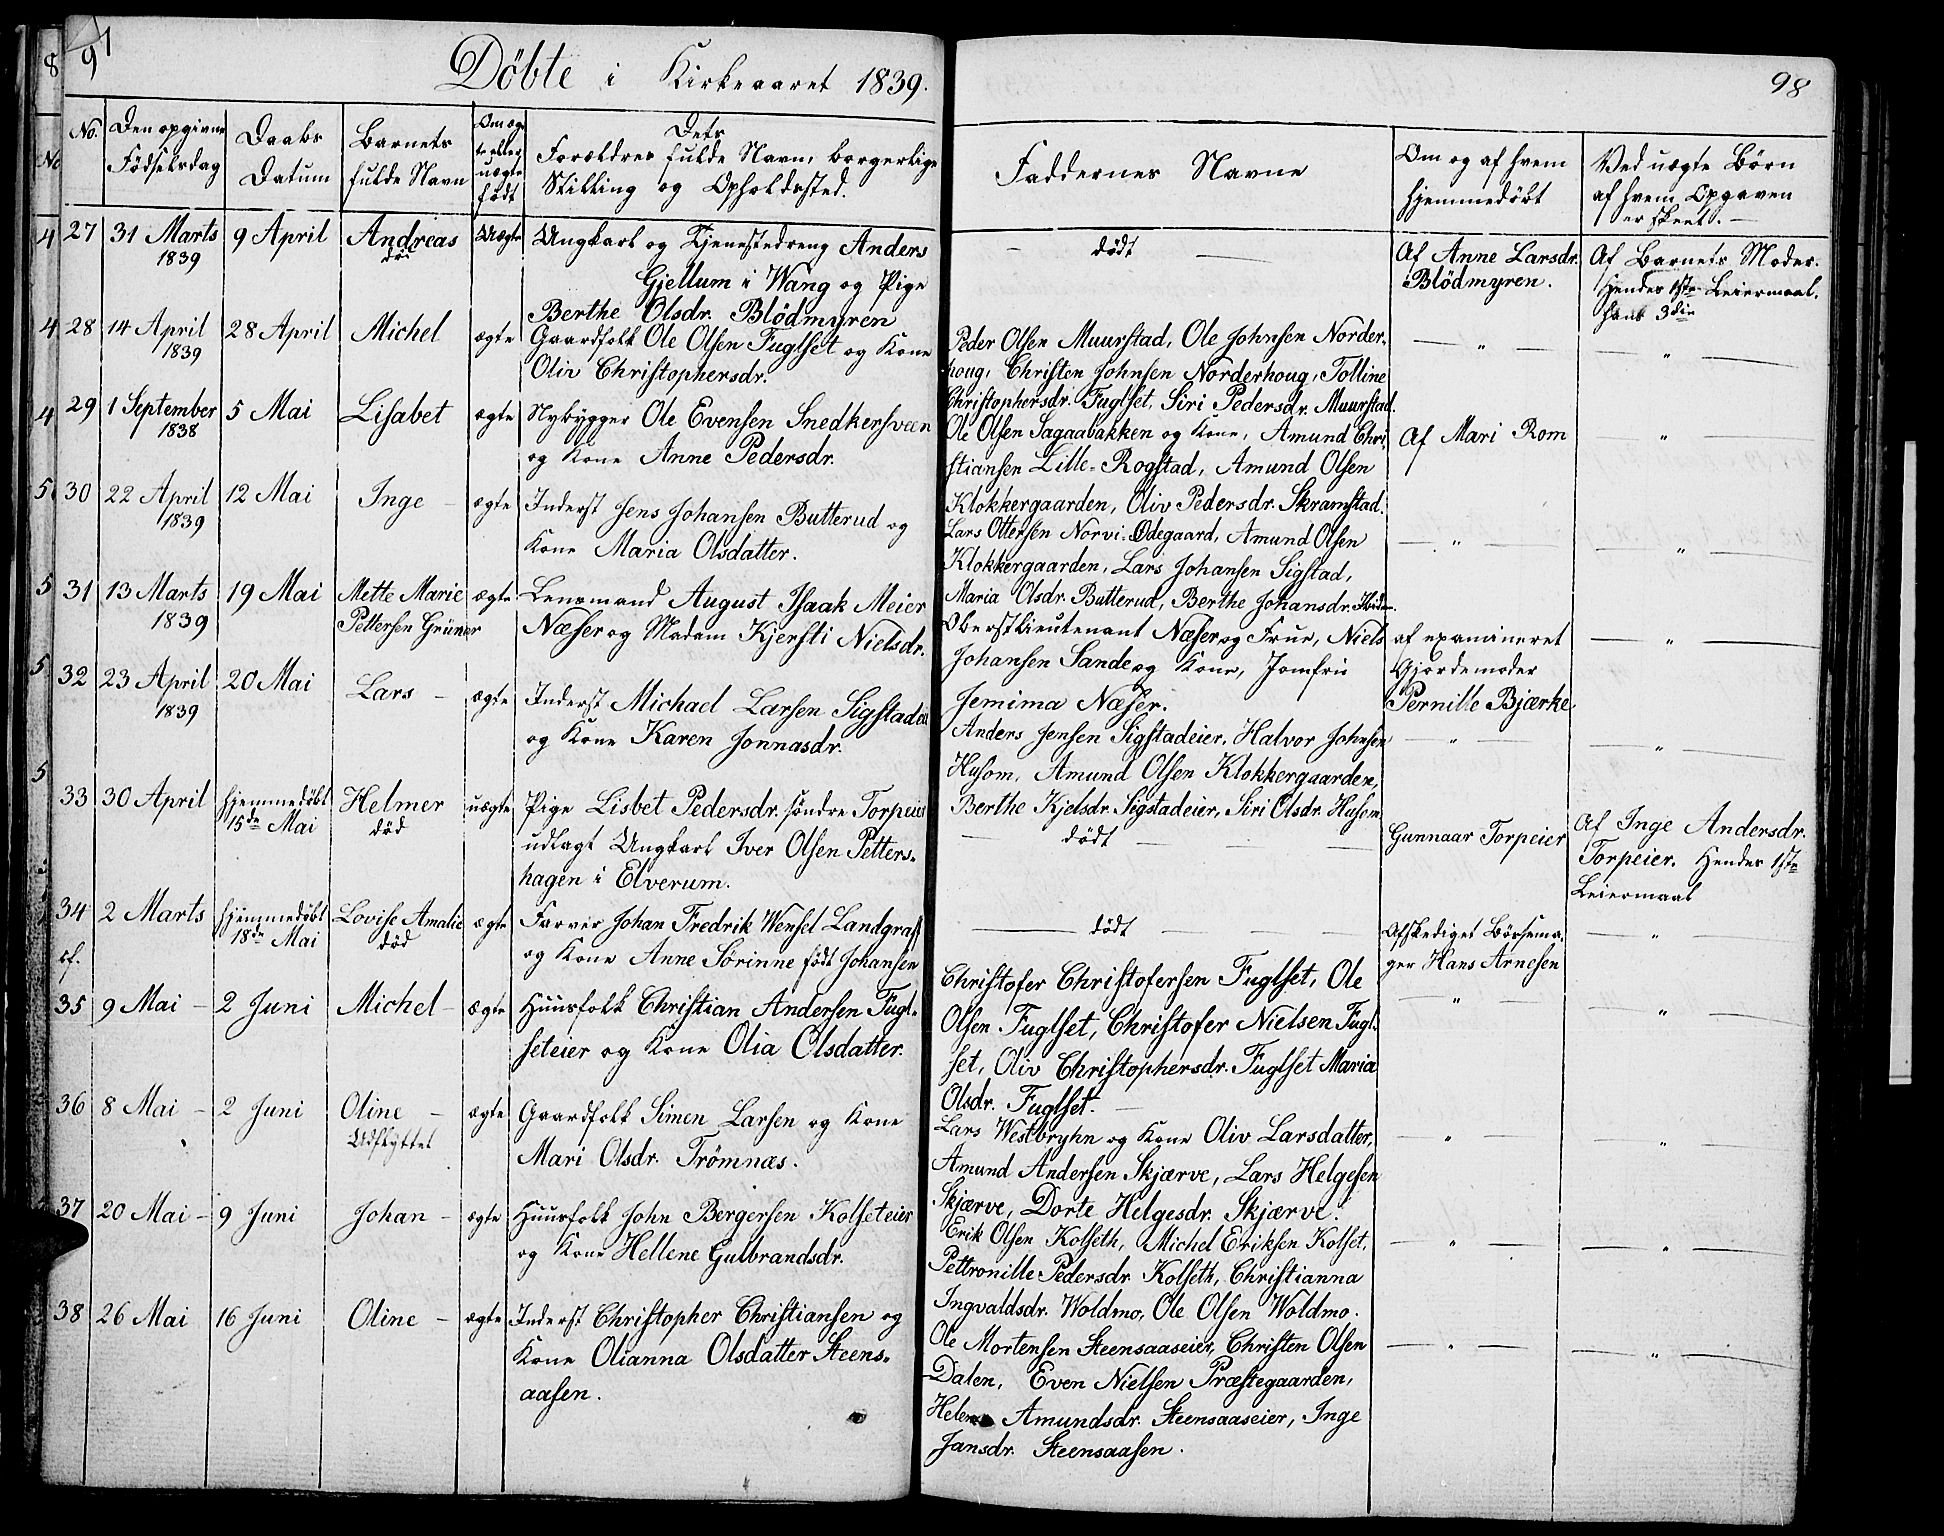 91
98
Döbte i Kirkeaaret 1839.
No.
Den opgivne Födselsdag
Daabs Datum
Barnets fulde Navn
Om ægte eller uægte födt
Dets Forældres fulde Navn, borgerlige Stilling og Opholdssted.
Faddernes Navne
Om og af hvem hjemmedöbt
Ved uægte Börn af hvem Opgaven er skeet. —
27 31 Marts 1839 9 April Andreas död Uægte Ungkarl og Tjenestedreng Anders
Gjellum i Wang og Pige
Berthe Olsdr. Blödmyren
— dödt —
Af Anne Larsdr.
Blödmyren.
Af Barnets Moder.
Hendes 1ste Leiermaal.
hans 3die
28 14 April 1839 28 April Michel ægte Gaardfolk Ole Olsen Fuglset og Kone
Oliv Christophersdr.
Peder Olsen Muurstad, Ole Johnsen Norder-
houg, Christen Johnsen Norderhoug, Tolline
Christophersdr. Fuglset, Siri Pedersdr. Muurstad.
— " —
— " —
29 1 September 1838 5 Mai Lisabet ægte Nybygger Ole Evensen Snedkersveen
og Kone Anne Pedersdr.
Ole Olsen Sagaabakken og Kone, Amund Chri-
stiansen Lille-Rogstad, Amund Olsen
Klokkergaarden, Oliv Pedersdr. Skramstad.
Af Mari Rom
— " —
30 22 April 1839 12 Mai Inge — ægte Inderst Jens Johansen Butterud og
Kone Maria Olsdatter.
Lars Ottersen Norvi-Ödegaard, Amund Olsen
Klokkergaarden, Lars Johansen Sigstad,
Maria Olsdr. Butterud, Berthe Johansdr.
— " —
— " —
31 13 Marts 1839 19 Mai Mette Marie
Pettersen Grüner ægte Lensmand August Isaak Meier
Næser og Madam Kjersti Nielsdr.
Oberstlieutenant Næser og Frue, Niels
Johansen Sande og Kone, Jomfru
Jemima Næser.
af examineret
Gjordemoder
Pernille Bjærke.
— " —
32 23 April 1839 20 Mai Lars — ægte Inderst Michael Larsen Sigstadei
og Kone Karen Jonnasdr.
Anders Jensen Sigstadeier, Halvor Johnsen
Husom, Amund Olsen Klokkergaarden,
Berthe Kjelsdr. Sigstadeier, Siri Olsdr. Husom
— " —
— " —
33 30 April hjemmedöbt
15de Mai Helmer
död uægte Pige Lisbet Pedersdr. söndre Torpeiet
udlagt Ungkarl Iver Olsen Petters-
hagen i Elverum.
— dödt —
Gunnaar Torpeier
Af Inge Andersdr.
Torpeier. Hendes 1ste
Leiermaal
34 2 Marts hjemmedöbt
18de Mai Lovise Amalie
död ægte Farver Johan Fredrik Wensel Landgraff
og Kone Anne Sörinne födt Johansen
— dödt —
Afskediget Börsema-
ger Hans Arnesen
— " —
35 9 Mai — 2 Juni Michel — ægte Huusfolk Christian Andersen Fugl-
seteier og Kone Olia Olsdatter.
Christofer Christofersen Fuglset, Ole
Olsen Fuglset, Christofer Nielsen Fugl-
set, Oliv Christophersdr. Fuglset Maria
Olsdr. Fuglset. —
— " —
— " —
36 8 Mai — 2 Juni Oline —
Udflyttet ægte Gaardfolk Simen Larsen og Kone
Mari Olsdr. Trömnæs.
Lars Westbryhn og Kone Oliv Larsdatter,
Amund Andersen Skjærve, Lars Helgesen
Skjærve, Dorte Helgesdr. Skjærve.
— " —
— " —
37 20 Mai — 9 Juni Johan — ægte Huusfolk John Bergersen Kolseteier
og Kone Hellene Gulbrandsdr.
Erik Olsen Kolseth, Michel Eriksen Kolset,
Pettronille Pedersdr. Kolseth, Christianna
Ingvaldsdr. Woldmo, Ole Olsen Woldmo.
— " —
— " —
38 26 Mai 16 Juni Oline — ægte Inderst Christopher Christiansen og
Kone Olianna Olsdatter Steens-
aasen.
Ole Mortensen Steensaaseier, Christen Olsen
Dalen, Even Nielsen Præstegaarden,
Helene Amundsdr. Steensaaseier, Inge
Jansdr. Steensaasen.
— " —
— " —